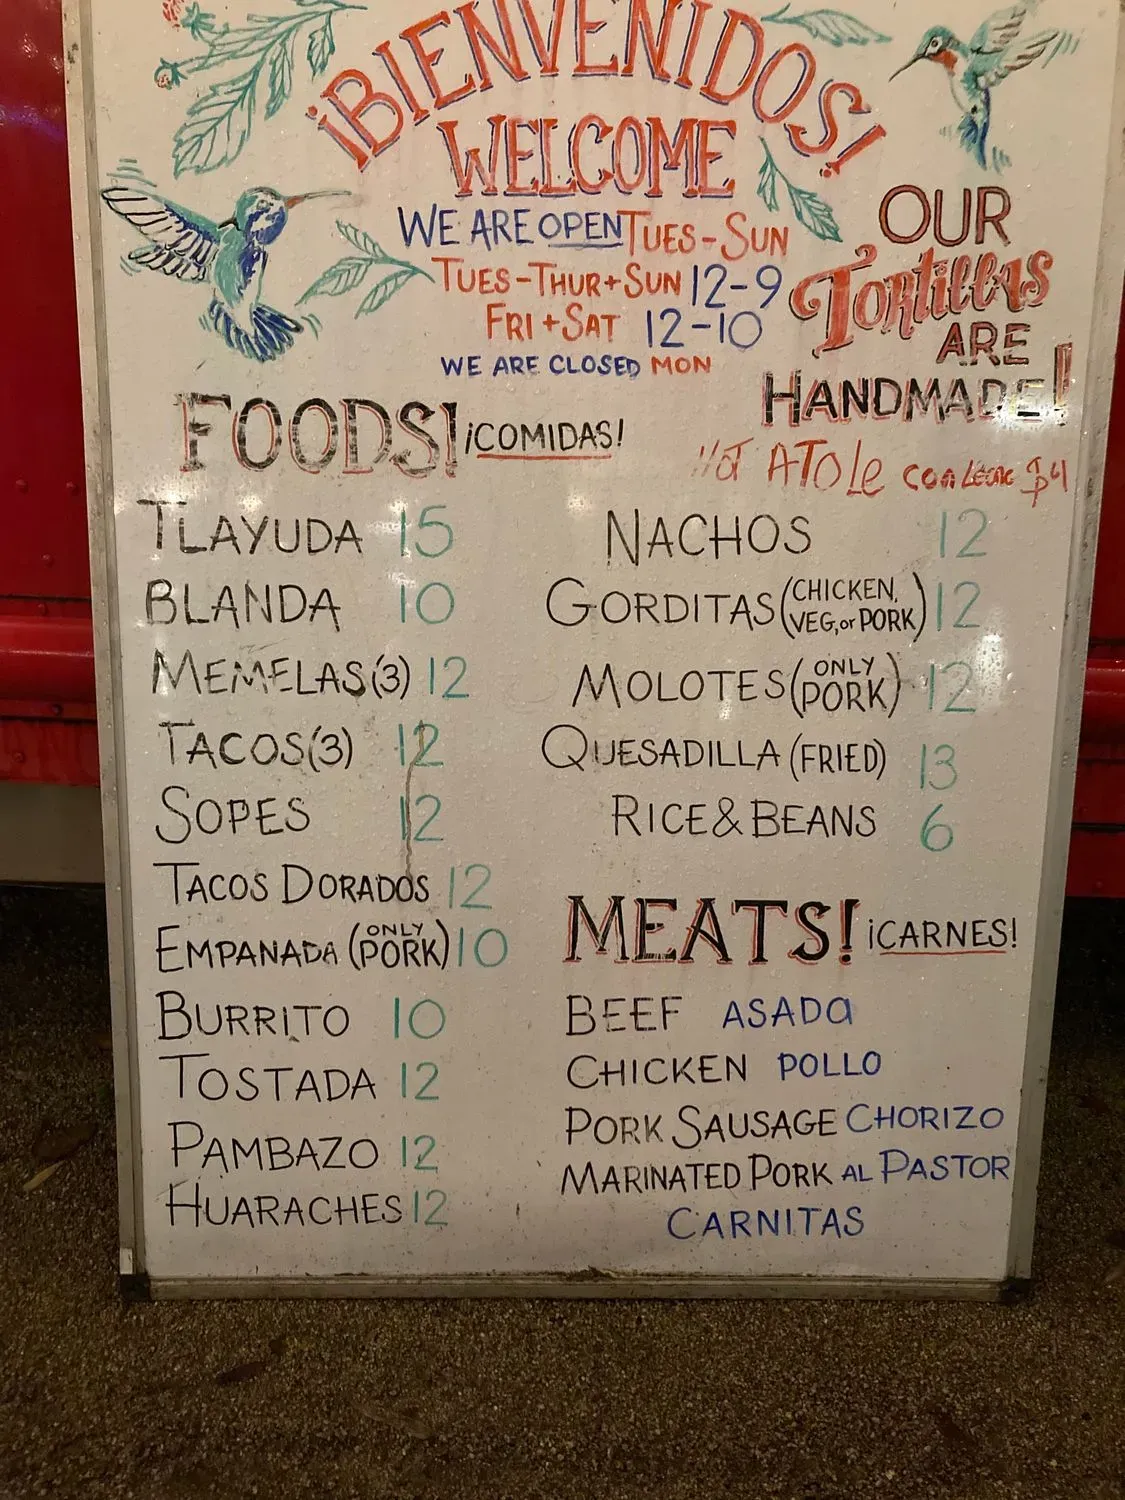 ¡BIENVENIDOS!
WELCOME
WE ARE OPEN TUES-SUN
TUES-THUR+SUN 12-9
FRI+SAT 12-10
WE ARE CLOSED MON
OUR
Tortillas
ARE
HANDMADE!
HOT ATOLE con Leche $4
FOODS! ¡COMIDAS!
TLAYUDA 15
BLANDA 10
MEMELAS(3) 12
TACOS(3) 12
SOPES 12
TACOS DORADOS 12
EMPANADA (ONLY PORK) 10
BURRITO 10
TOSTADA 12
PAMBAZO 12
HUARACHES 12
NACHOS 12
GORDITAS (CHICKEN, VEG, or PORK) 12
MOLOTES (ONLY PORK) 12
QUESADILLA (FRIED) 13
RICE & BEANS 6
MEATS! ¡CARNES!
BEEF ASADA
CHICKEN POLLO
PORK SAUSAGE CHORIZO
MARINATED PORK AL PASTOR
CARNITAS